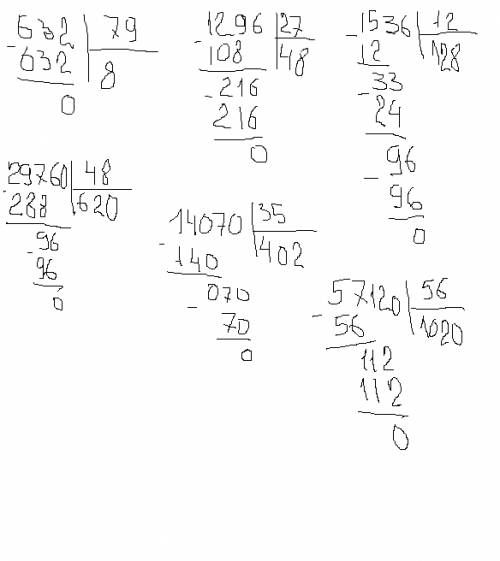 632 | 79
- 632 | 8
0
1296 | 27
- 108 | 48
- 216
216
0
- 1536 | 12
12 | 128
- 33
24
- 96
96
0
29760 | 48
- 288 | 620
- 96
96
0
14070 | 35
- 140 | 402
070
- 70
0
57120 | 56
- 56 | 1020
112
112
0